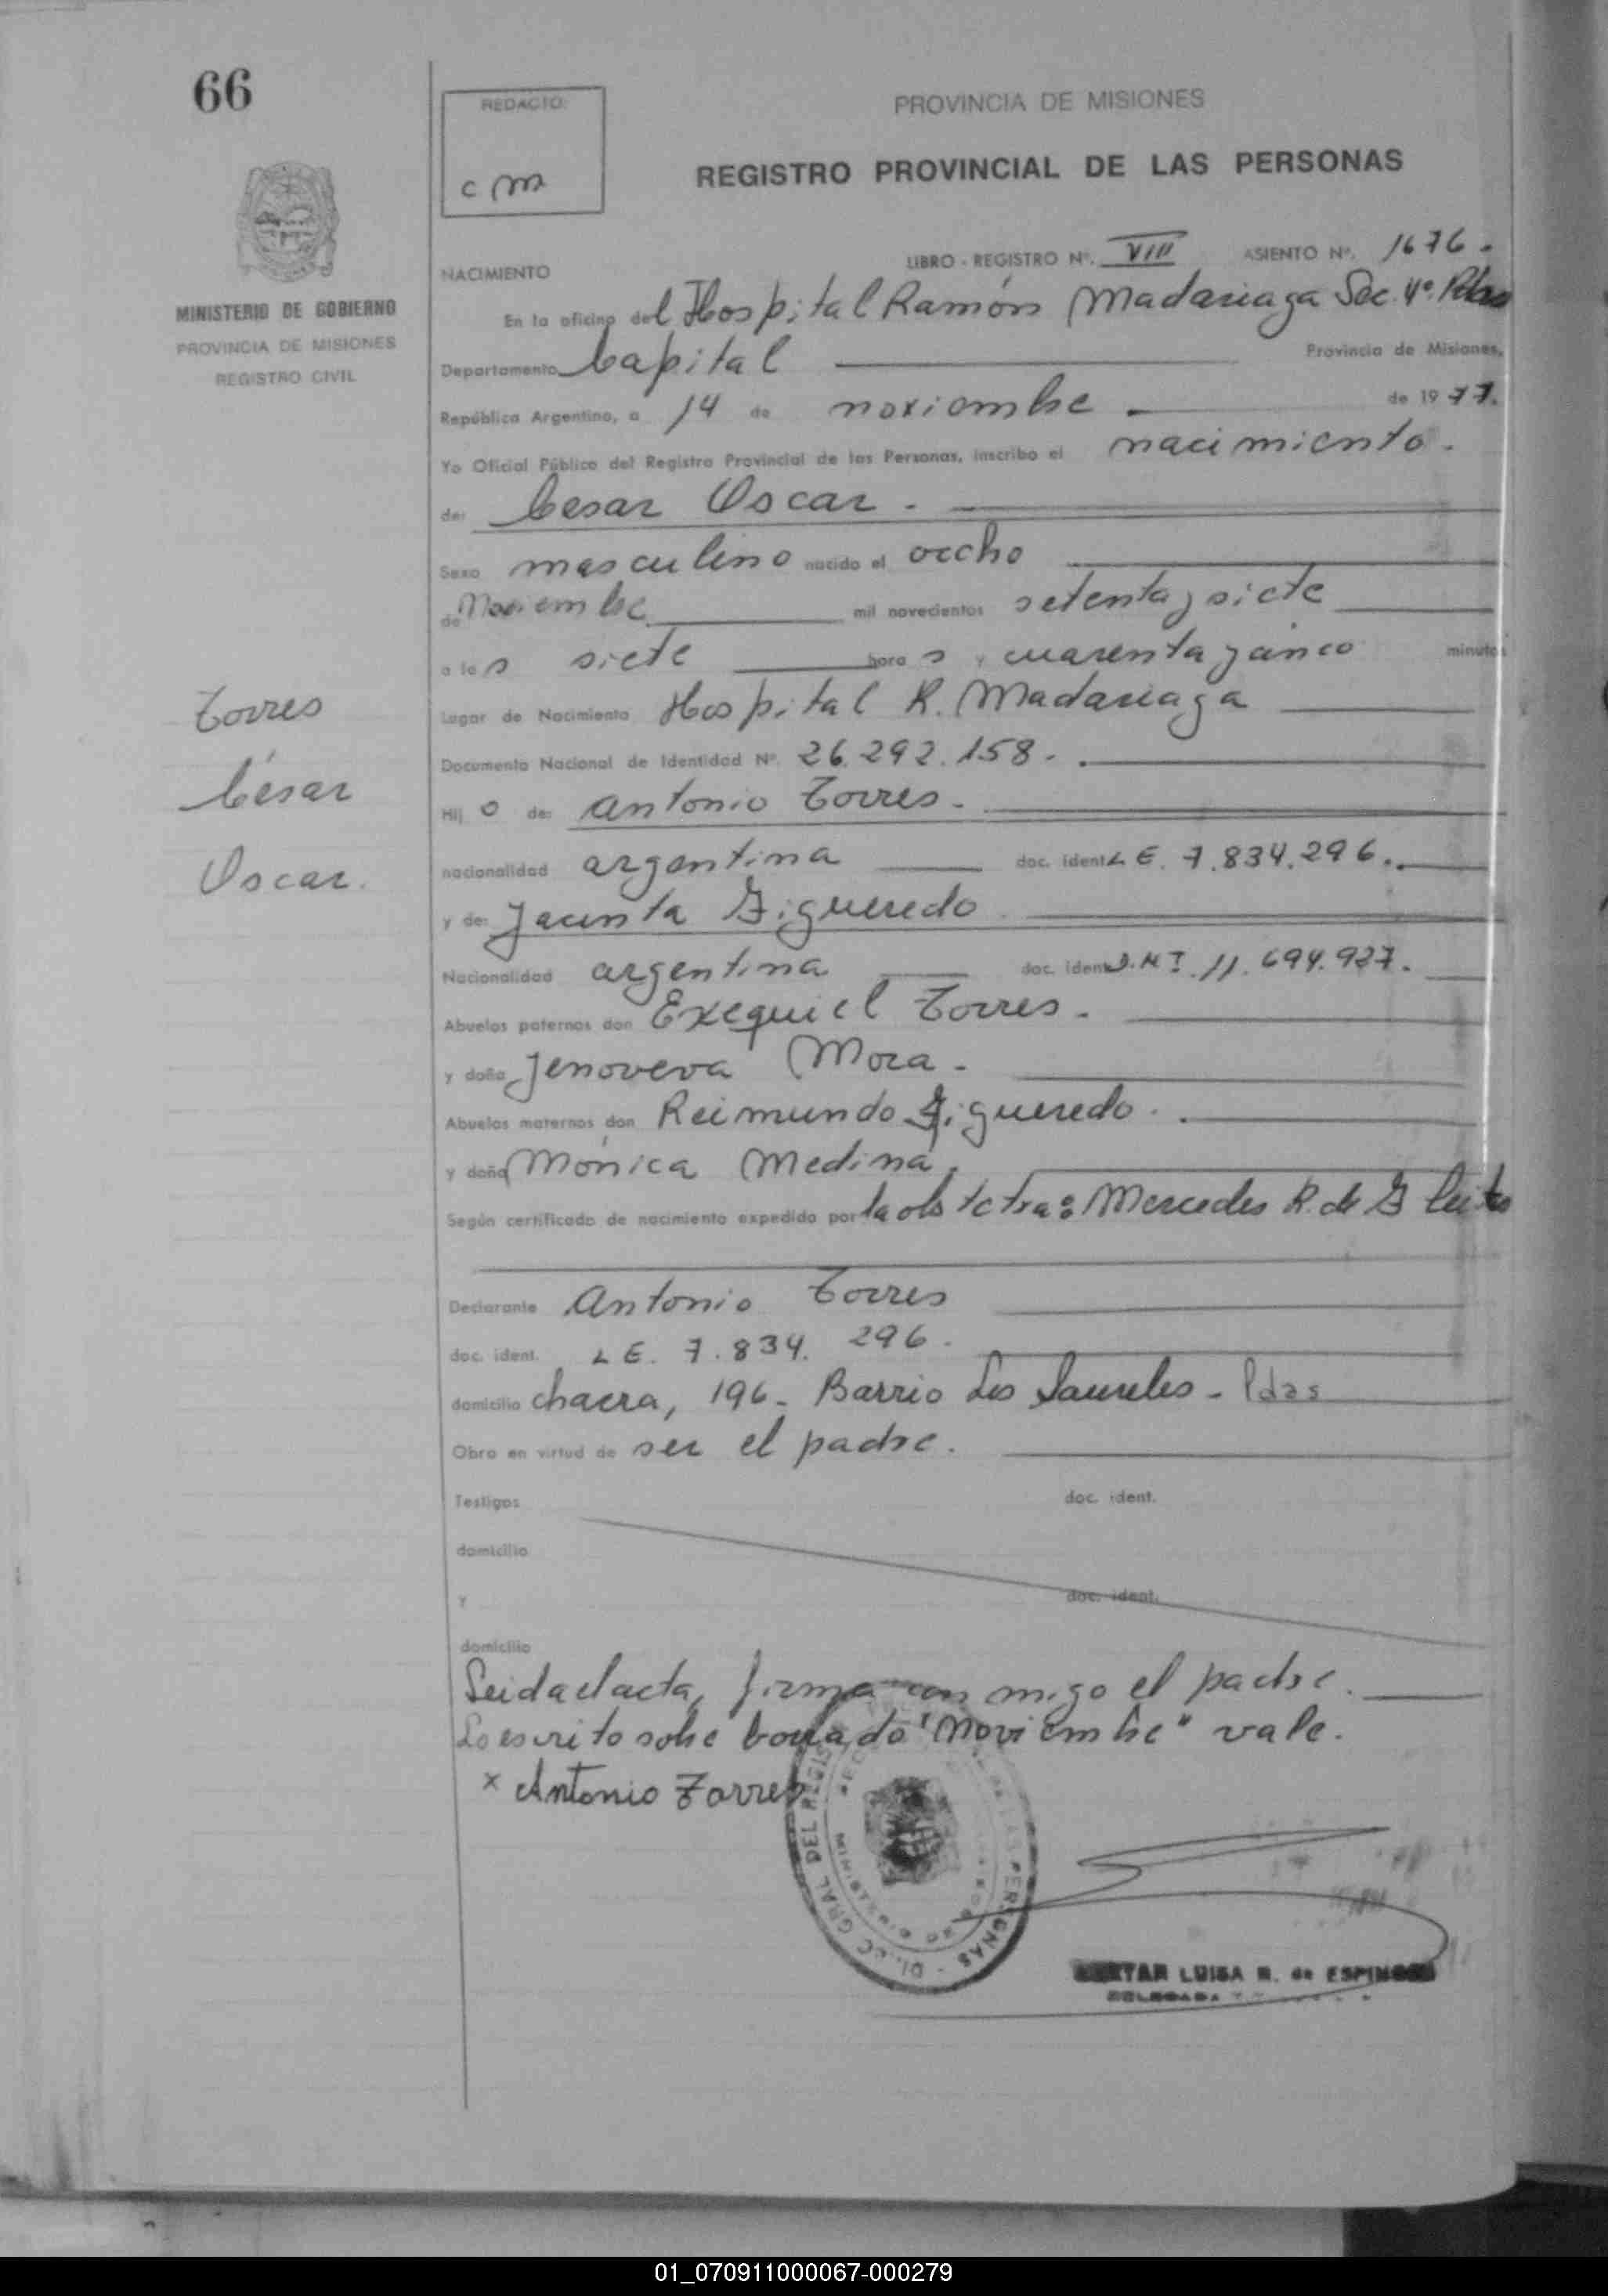 66
REDACTO:
c m
PROVINCIA DE MISIONES
REGISTRO PROVINCIAL DE LAS PERSONAS
MINISTERIO DE GOBIERNO
PROVINCIA DE MISIONES
REGISTRO CIVIL
LIBRO - REGISTRO Nº. VIII ASIENTO Nº. 1676.
NACIMIENTO
En la oficina del Hospital Ramón Madariaga Sec. 4º. Pdas
Departamento Capital Provincia de Misiones,
República Argentina, a 14 de noviembre de 1977.
Yo Oficial Público del Registro Provincial de las Personas, inscribo el nacimiento.
de: Cesar Oscar.
Sexo masculino nacido el occho
de Noviembre mil novecientos setenta y siete
a las siete horas y cuarenta y cinco minutos
Lugar de Nacimiento Hospital R. Madariaga
Documento Nacional de Identidad Nº. 26.292.158.
Hijo de: Antonio Torres.
nacionalidad argentina doc. ident. L E. 7.834.296.
y de: Jacinta Figueredo
Nacionalidad argentina doc. ident. D.N I. 11.694.927.
Abuelos paternos don Exequiel Torres.
y doña Jenoveva Mora.
Abuelos maternos don Reimundo Figueredo.
y doña Mónica Medina.
Según certificado de nacimiento expedido por la obstetra: Mercedes R. de
Declarante Antonio Torres
doc. ident. L E. 7.834. 296.
domicilio chacra, 196. Barrio Los Laureles - Pdas
Obra en virtud de ser el padre.
Testigos doc. ident.
domicilio
Y doc. ident.
domicilio
Leida el acta, firma con migo el padre.
Lo escrito sobre borrado "Noviembre" vale.
x Antonio Torres
Torres
César
Oscar.
DEL REGIS PERSONAS - DIREC GRAL
LUISA R. de ESPINOSA
DELEGADA
01_070911000067-000279